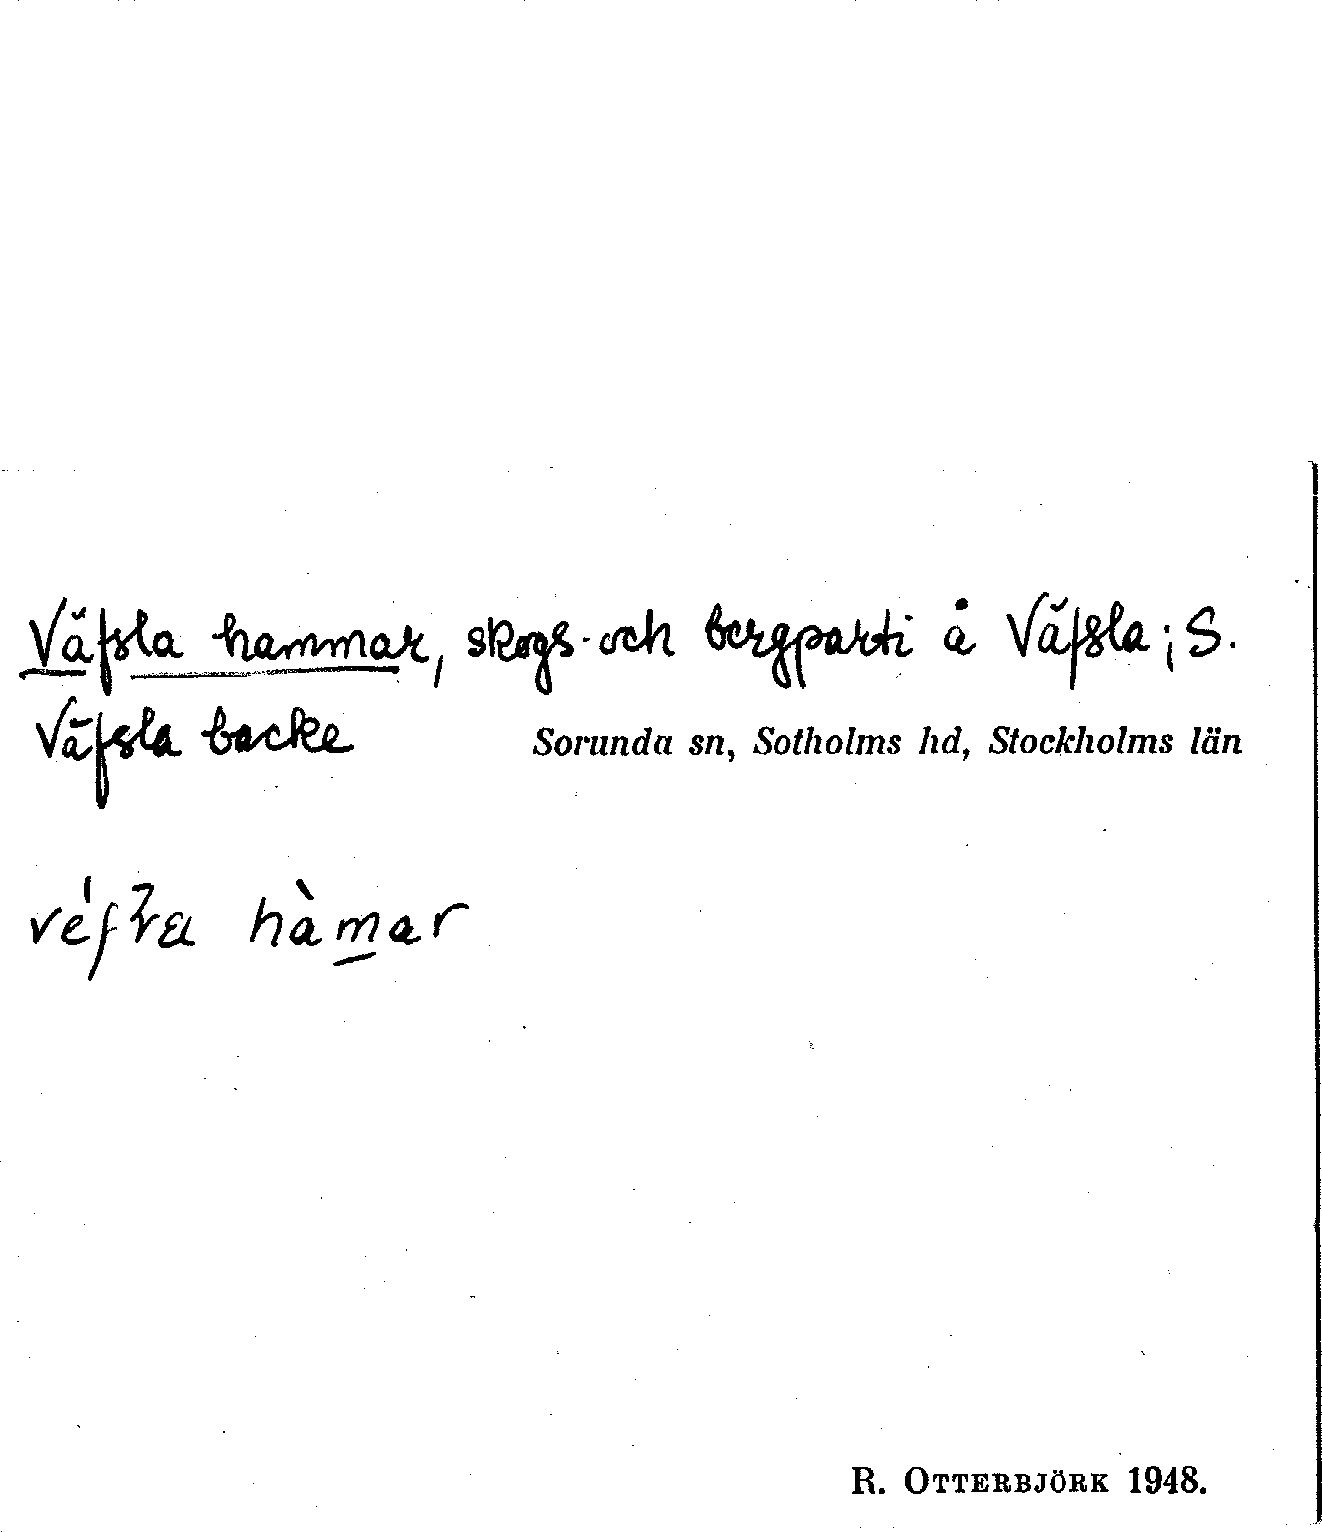 Väfsla hammar, skogs- och bergparti å Väfsla; S.
Väfsla backe
Sorunda sn, Sotholms hd, Stockholms län
hàmar
R. OTTERBJÖRK 1948.